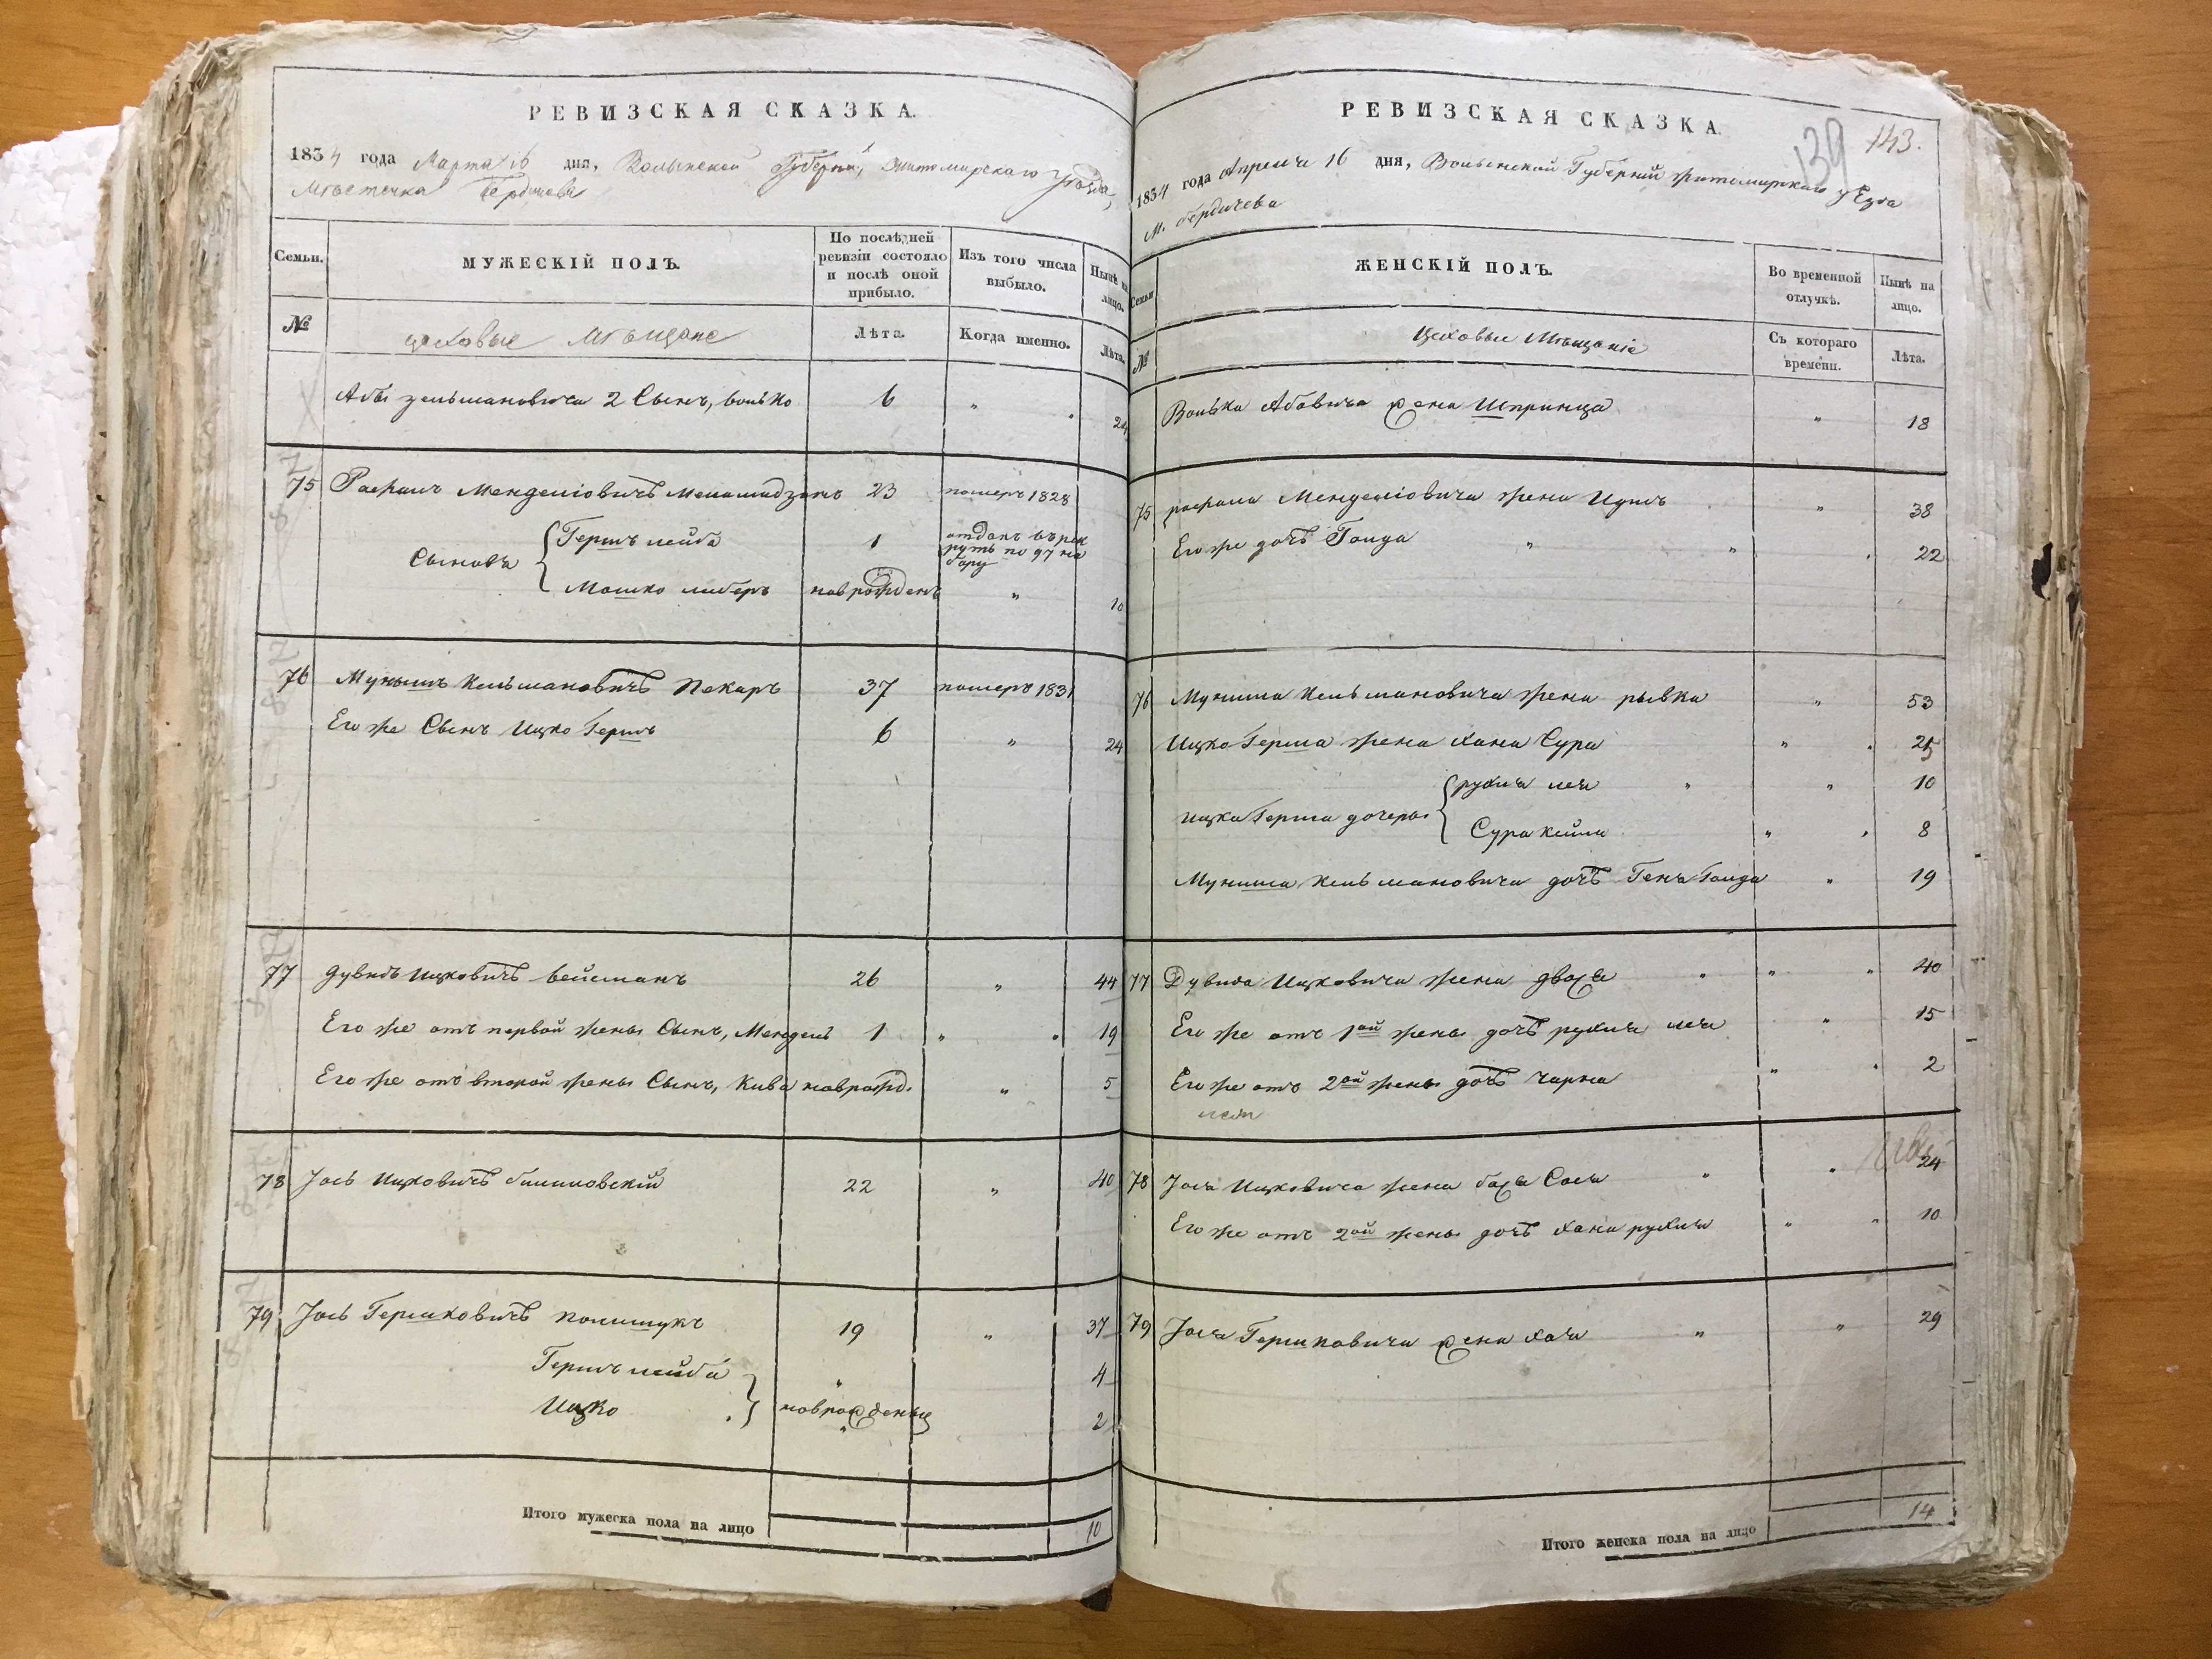 РЕВИЗСКАЯ СКАЗКА.
1834 года Марта 16 дня, Волынской Губерніи, Житомирскаго уѣзда,
Мѣстечка Бердичева
Семьи.
МУЖЕСКІЙ ПОЛЪ.
По послѣдней ревизіи состояло и послѣ оной прибыло.
Изъ того числа выбыло.
Нынѣ на лицо.
№
цеховые Мѣщане
Лѣта.
Когда именно.
Лѣта.
Абы зельмановича 2 Сынъ, волько 6 " 24
75 Рафаилъ Менделіовичъ 23 померъ 1828
Сыновья { Гершъ лейба 1 отданъ въ рекруты по 97 набору
Мошко либеръ новрожденъ " 10
76 Мунышъ Кельмановичъ Пекаръ 37 померъ 1831
Его же Сынъ Ицко Гершъ 6 " 24
77 дувидъ ицковичъ вейсманъ 26 " 44
Его же отъ первой жены Сынъ, Мендель 1 " 19
Его же отъ второй жены Сынъ, Кива новрожд. " 5
78 Іось Ицковичъ билиловскій 22 " 40
79 Іось Гершковичъ полищукъ 19 " 37
Гершъ лейба " 4
Ицко } новрожденые 2
Итого мужеска пола на лицо 10
РЕВИЗСКАЯ СКАЗКА.
139 143.
1834 года Апреля 16 дня, Волынской Губерніи житомирскаго уезда
м. бердичева
Семьи
ЖЕНСКІЙ ПОЛЪ.
Во временной отлучкѣ.
Нынѣ на лицо.
№
Цеховые Мѣщаніе
Съ котораго времени.
Лѣта.
Волька Абовича жена Шпринца " 18
75 рафаила Менделіовича жена " 38
Его же дочъ Голда " " 22
76 Муниша Кельмановича жена рывка " 53
Ицко Герша жена хана Сура " 25
ицка Герша дочеры { рухля лея " " 10
Сура кейла " 8
Муниша Кельмановича дочъ Геня Голда " 19
77 Дувида Ицковича жена двося " " 40
Его же отъ 1ой жены дочъ рухля лея " 15
Его же отъ 2ой жены дочъ чарна " 2
78 Іося Ицковича жена бася Сося " " 24
Его же отъ 2ой жены дочъ хана рухля " " 10
79 Іося Гершковича жена хая " " 29
Итого женска пола на лицо 14